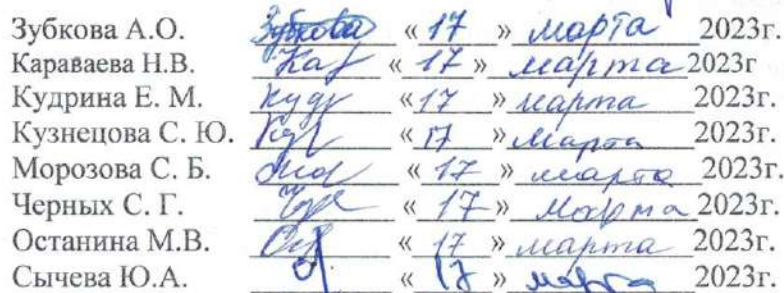 Зубкова А.О. Зубкова « 17 » марта 2023г.
Караваева Н.В. Кар « 17 » марта 2023г
Кудрина Е. М. Кудр « 17 » марта 2023г.
Кузнецова С. Ю. « 17 » марта 2023г.
Морозова С. Б. « 17 » марта 2023г.
Черных С. Г. « 17 » марта 2023г.
Останина М.В. « 17 » марта 2023г.
Сычева Ю.А. « 17 » марта 2023г.